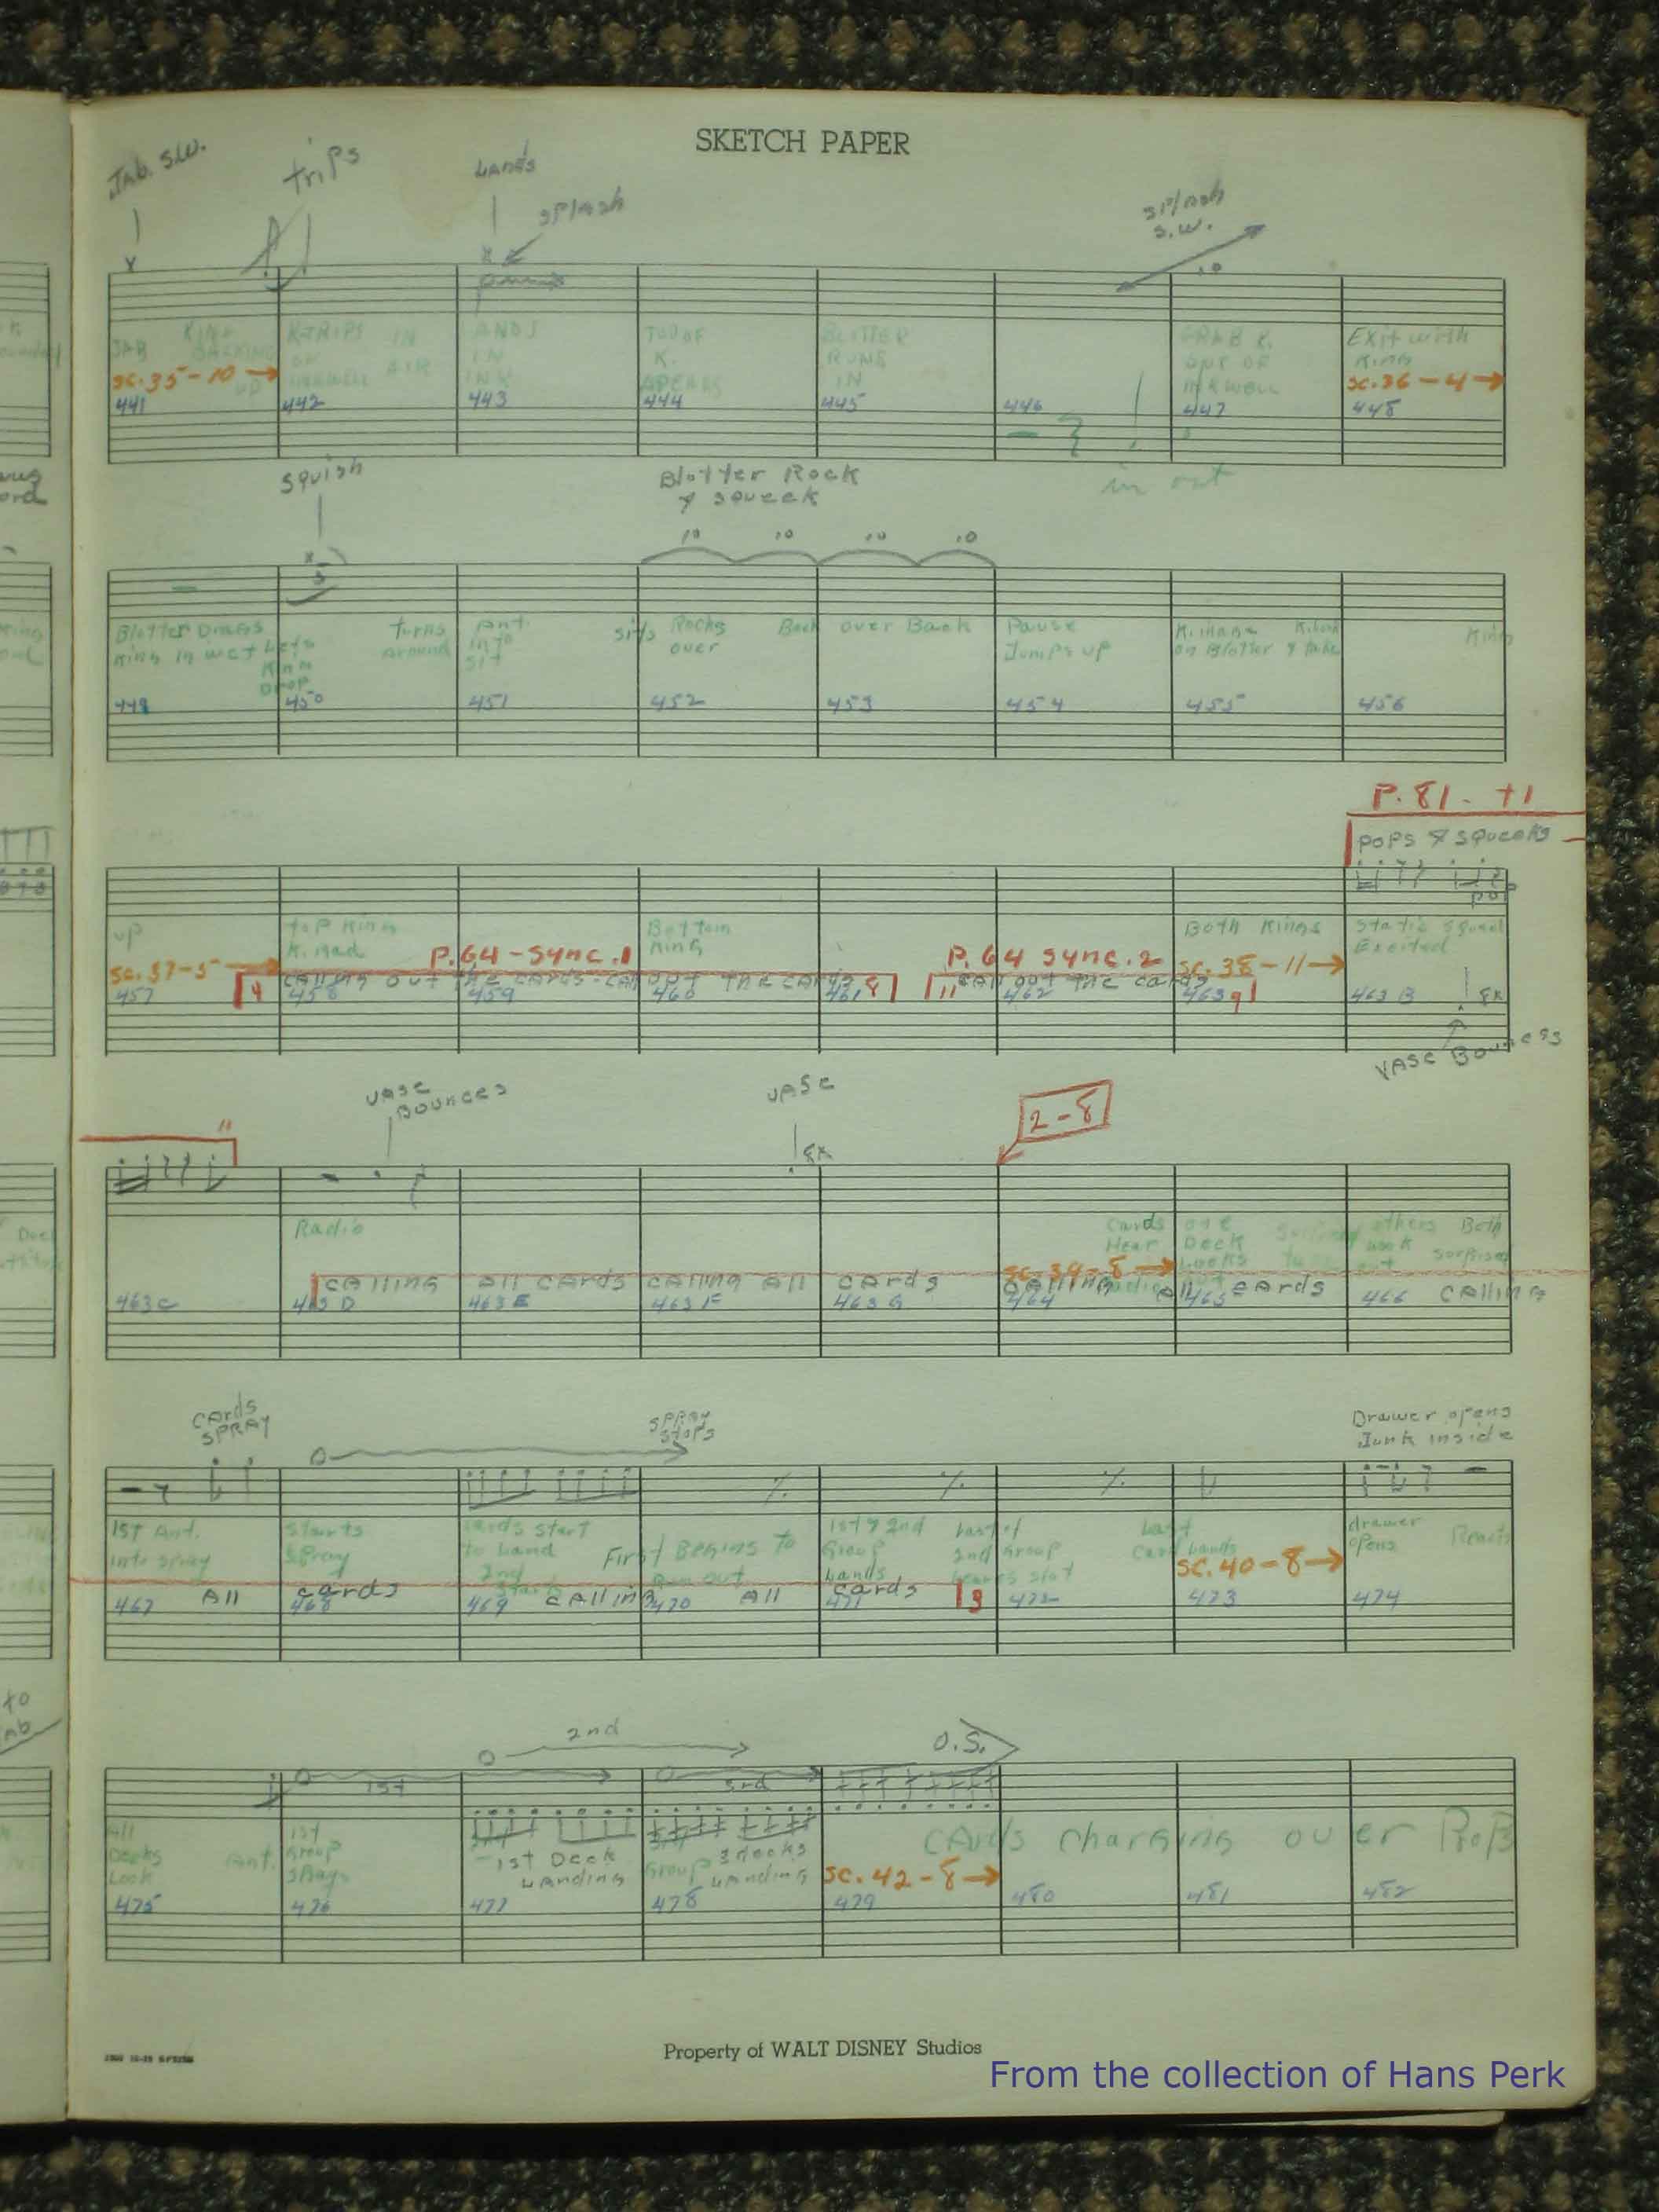 SKETCH PAPER
Jab. S.W.
trips
LANDS
SPLASH
SPLASH
S.W.
JAB
KING
BACKING
UP
SC. 35-10 →
441
K. TRIPS
ON
INKWELL
IN
AIR
442
LANDS
IN
INK
443
TOP OF
K.
APEARS
444
BLOTTER
RUNS
IN
445
446
GRAB K.
OUT OF
INKWELL
447
EXit with
KING
SC. 36-4 →
448
in out
squish
Blotter Rock
& squeek
10 10 10 10
Blotter Drags
King in wet
449
Lets
King
Drop
450
turns
around
Ant.
into
sit
451
sits
Rocks
over
452
Back over Back
453
Pause
Jumps up
454
on Blotter & take
455
King
456
P. 81. +1
POPS & squeaks
up
SC. 37-5 →
457
top King
K. Mad
P. 64 - Sync. 1
4 calling out the cards - call out the cards 8
458
459
Bottom
King
460
461
P. 64 Sync. 2
11 call out the cards 9
462
Both Kings
SC. 38-11 →
463
Static
Excited
POP
463 B
8x
VASE BOUNCES
11
VASE
BOUNCES
VASE
8x
2-8
463C
Radio
calling All cards calling All cards
463 D
463 E
463 F
463 G
Cards
Hear
SC. 39-8 →
calling All cards
464
one
Deck
Looks
465
others
look
Both
surprised
466
calling
CArds
SPRAY
SPRAY
Stops
Drawer opens
Junk inside
1st Ant.
into spray
467
All
Starts
Spray
cards
468
cards start
to land
2nd
Starts
469
calling
First Begins to
Run out
470
All
1st & 2nd
Group
Lands
cards
471
Last of
2nd Group
3
472
Last
Card Lands
SC. 40-8 →
473
drawer
opens
Reacts
474
2nd
O.S.
1st
3rd
All
Decks
Look
475
Ant.
1st
Group
Sprays
476
1st Deck
Landing
477
Group
3 decks
Landing
478
SC. 42-8 →
479
CArds charging over Prop
480
481
482
Property of WALT DISNEY Studios
From the collection of Hans Perk